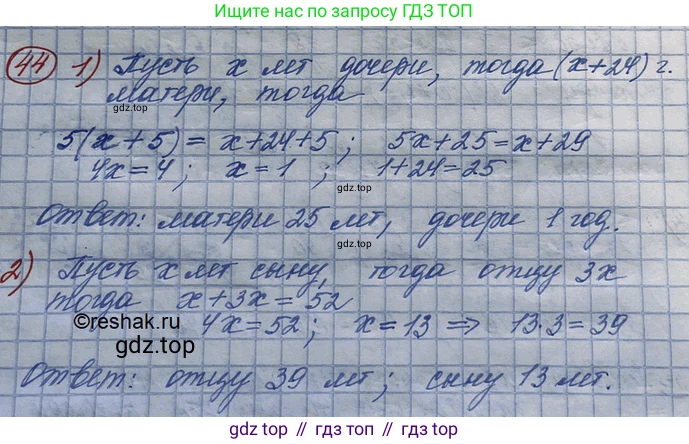 Ищите нас по запросу ГДЗ ТОП
44 1) Пусть x лет дочери, тогда (x+24) г.
матери, тогда
gdz.top
5(x+5) = x+24+5; 5x+25=x+29
4x=4; x=1; 1+24=25
gdz.top
Ответ: матери 25 лет, дочери 1 год.
gdz.top
2) Пусть x лет сыну, тогда отцу 3x
тогда x+3x=52
©reshak.ru
4x=52; x=13 ⇒ 13·3=39
gdz.top
Ответ: отцу 39 лет; сыну 13 лет.
gdz.top // гдз топ // gdz.top